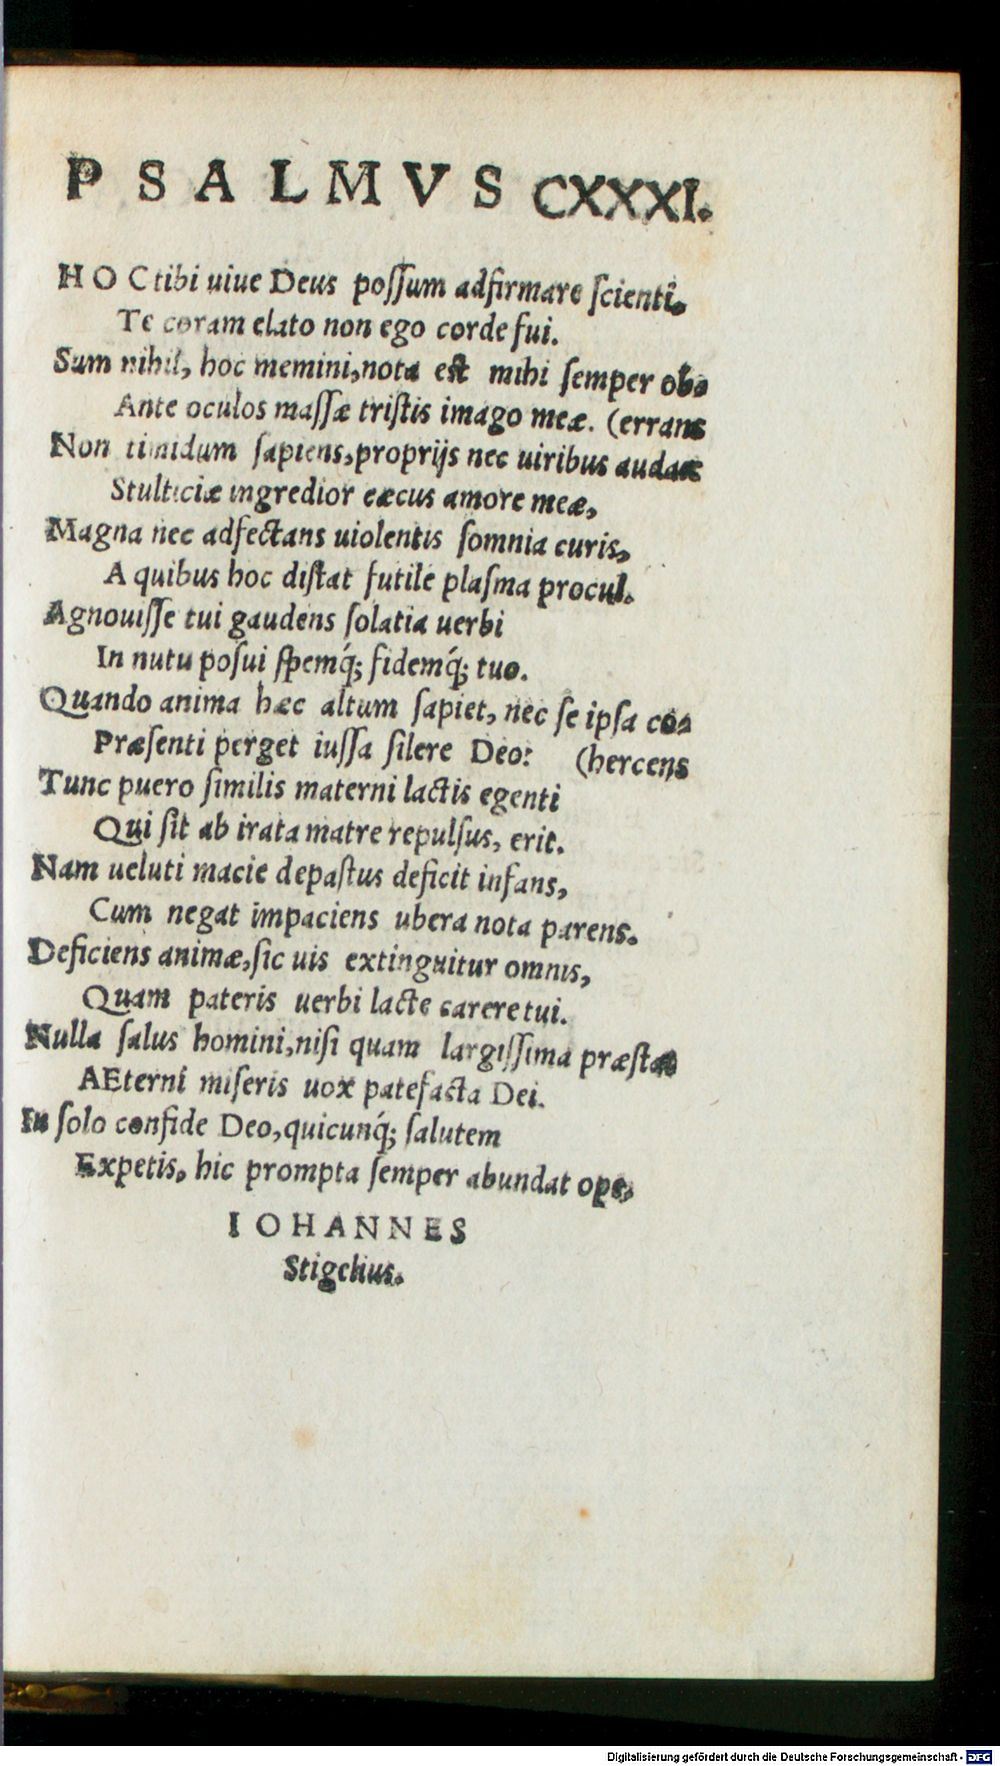 PSALMVS CXXXI.
HOC tibi uiue Deus possum adfirmare scienti.
Te coram elato non ego corde fui.
Sum nihil, hoc memini, nota est mihi semper ob-
Ante oculos massæ tristis imago meæ. (errans
Non timidum sapiens, proprijs nec uiribus audax
Stulticiæ ingredior cæcus amore meæ,
Magna nec adfectans uiolentis somnia curis,
A quibus hoc distat futile plasma procul.
Agnouisse tui gaudens solatia uerbi
In nutu posui spemq́; fidemq́; tuo.
Quando anima hæc altum sapiet, nec se ipsa co-
Præsenti perget iussa silere Deo: (hercens
Tunc puero similis materni lactis egenti
Qui sit ab irata matre repulsus, erit.
Nam ueluti macie depastus deficit infans,
Cum negat impaciens ubera nota parens.
Deficiens animæ, sic uis extinguitur omnis,
Quam pateris uerbi lacte carere tui.
Nulla salus homini, nisi quam largissima præstat
AEterni miseris uox patefacta Dei.
In solo confide Deo, quicunq́; salutem
Expetis, hic prompta semper abundat ope,
IOHANNES
Stigelius.
Digitalisierung gefördert durch die Deutsche Forschungsgemeinschaft - DFG